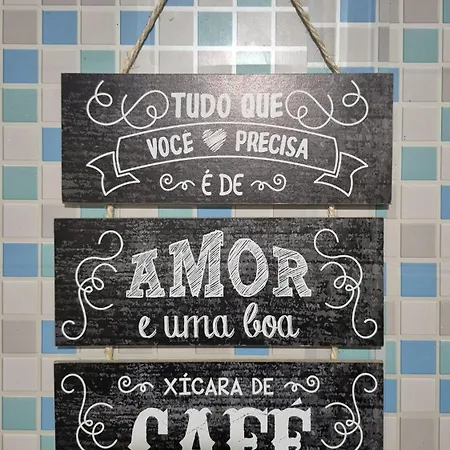 TUDO QUE
VOCÊ PRECISA
É DE
AMOR
e uma boa
XÍCARA DE
CAFÉ